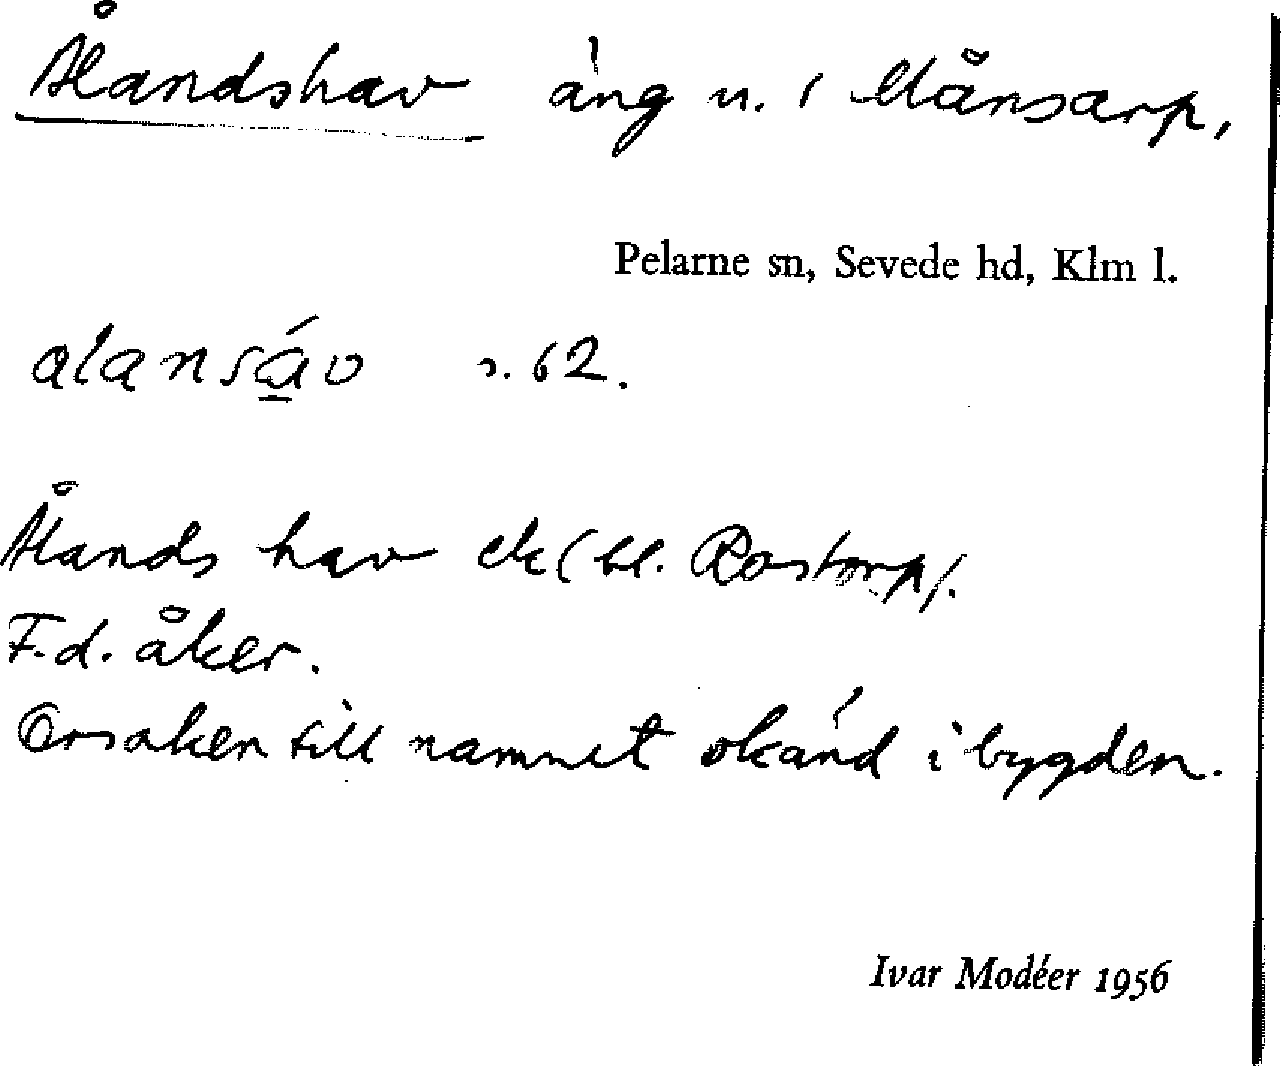 Ålandshav äng u. i Månsarp,
Pelarne sn, Sevede hd, Klm l.
alansáv s. 62.
Ålands hav ek (bl. Rostorp).
F.d. åker.
Orsaken till namnet okänd i bygden.
Ivar Modéer 1956